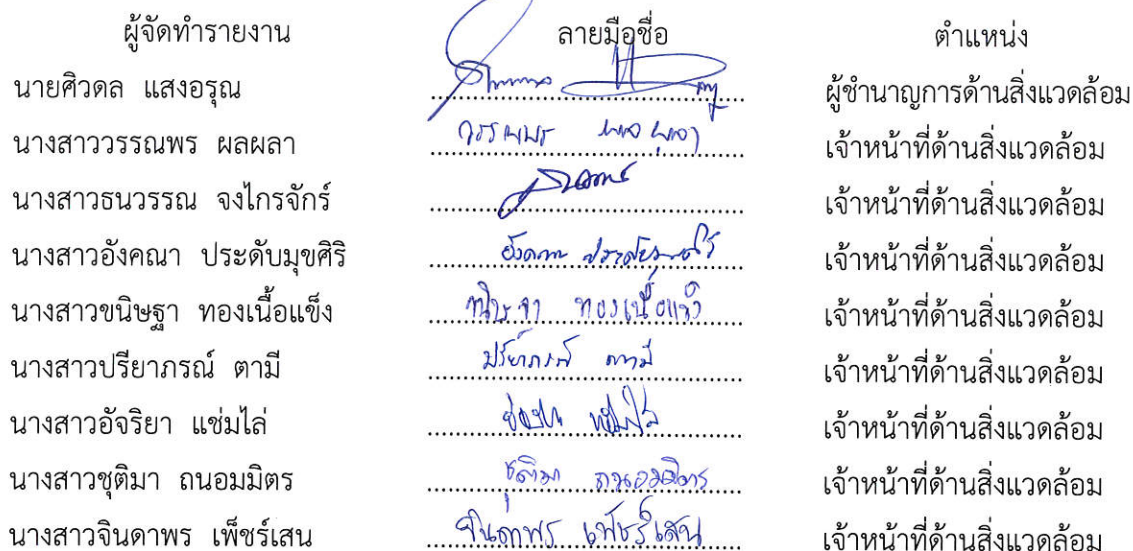 ผู้จัดทำรายงาน ลายมือชื่อ ตำแหน่ง
นายศิวดล แสงอรุณ ผู้ชำนาญการด้านสิ่งแวดล้อม
นางสาววรรณพร ผลผลา วรรณพร ผลผลา เจ้าหน้าที่ด้านสิ่งแวดล้อม
นางสาวธนวรรณ จงไกรจักร์ เจ้าหน้าที่ด้านสิ่งแวดล้อม
นางสาวอังคณา ประดับมุขศิริ อังคณา ประดับมุขศิริ เจ้าหน้าที่ด้านสิ่งแวดล้อม
นางสาวขนิษฐา ทองเนื้อแข็ง ขนิษฐา ทองเนื้อแข็ง เจ้าหน้าที่ด้านสิ่งแวดล้อม
นางสาวปรียาภรณ์ ตามี ปรียาภรณ์ ตามี เจ้าหน้าที่ด้านสิ่งแวดล้อม
นางสาวอัจริยา แช่มไล่ เจ้าหน้าที่ด้านสิ่งแวดล้อม
นางสาวชุติมา ถนอมมิตร ชุติมา ถนอมมิตร เจ้าหน้าที่ด้านสิ่งแวดล้อม
นางสาวจินดาพร เพ็ชร์เสน จินดาพร เพ็ชร์เสน เจ้าหน้าที่ด้านสิ่งแวดล้อม